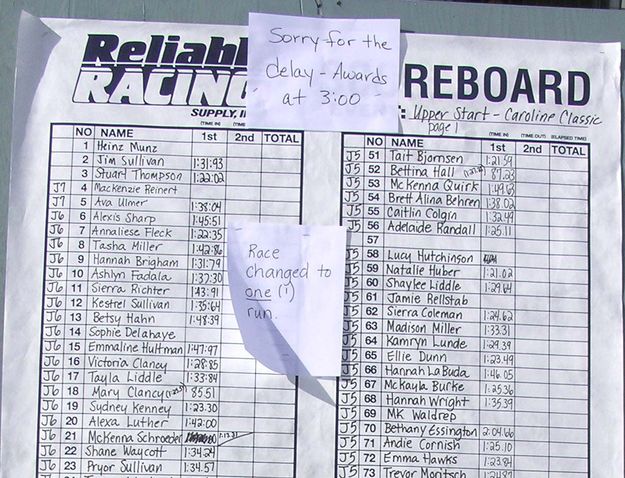 Sorry for the
delay - Awards
at 3:00
Reliabl
RACING
SUPPLY, I
REBOARD
: Upper Start - Caroline Classic
page 1
(TIME IN) (TIME
NO NAME 1st 2nd TOTAL
1 Heinz Munz
2 Jim Sullivan 1:31:93
3 Stuart Thompson 1:22:02
J7 4 Mackenzie Reinert
J7 5 Ava Ulmer 1:38:04
J6 6 Alexis Sharp 1:45:51
J6 7 Annaliese Fleck 1:22:35
J6 8 Tasha Miller 1:42:86
J6 9 Hannah Brigham 1:31:79
J6 10 Ashlyn Fadala 1:37:30
J6 11 Sierra Richter 1:43:91
J6 12 Kestrel Sullivan 1:35:64
J6 13 Betsy Hahn 1:48:39
J6 14 Sophie Delahaye
J6 15 Emmaline Hultman 1:47:97
J6 16 Victoria Clancy 1:28:85
J6 17 Tayla Liddle 1:33:84
J6 18 Mary Clancy 85.51
J6 19 Sydney Kenney 1:23.30
J6 20 Alexa Luther 1:42:00
J6 21 McKenna Schroeder
J6 22 Shane Waycott 1:34.24
J6 23 Pryor Sullivan 1:34.57
Race
changed to
one (1)
run.
(TIME IN) (TIME OUT) (ELAPSED TIME)
NO NAME 1st 2nd TOTAL
J5 51 Tait Bjornsen 1:21.59
J5 52 Bettina Hall 87.23
J5 53 McKenna Quirk 1:49.63
J5 54 Brett Alina Behren 1:38.02
J5 55 Caitlin Colgin 1:32.49
J5 56 Adelaide Randall 1:25.11
57
J5 58 Lucy Hutchinson
J5 59 Natalie Huber 1:21.02
J5 60 Shaylee Liddle 1:29.64
J5 61 Jamie Rellstab
J5 62 Sierra Coleman 1:24.62
J5 63 Madison Miller 1:33.31
J5 64 Kamryn Lunde 1:29.39
J5 65 Ellie Dunn 1:23.49
J5 66 Hannah LaBuda 1:46.05
J5 67 McKayla Burke 1:25.36
J5 68 Hannah Wright 1:35.39
J5 69 MK Waldrep
J5 70 Bethany Essington 2:04.66
J5 71 Andie Cornish 1:25.10
J5 72 Emma Hawks 1:23.84
J5 73 Trevor Moritsch